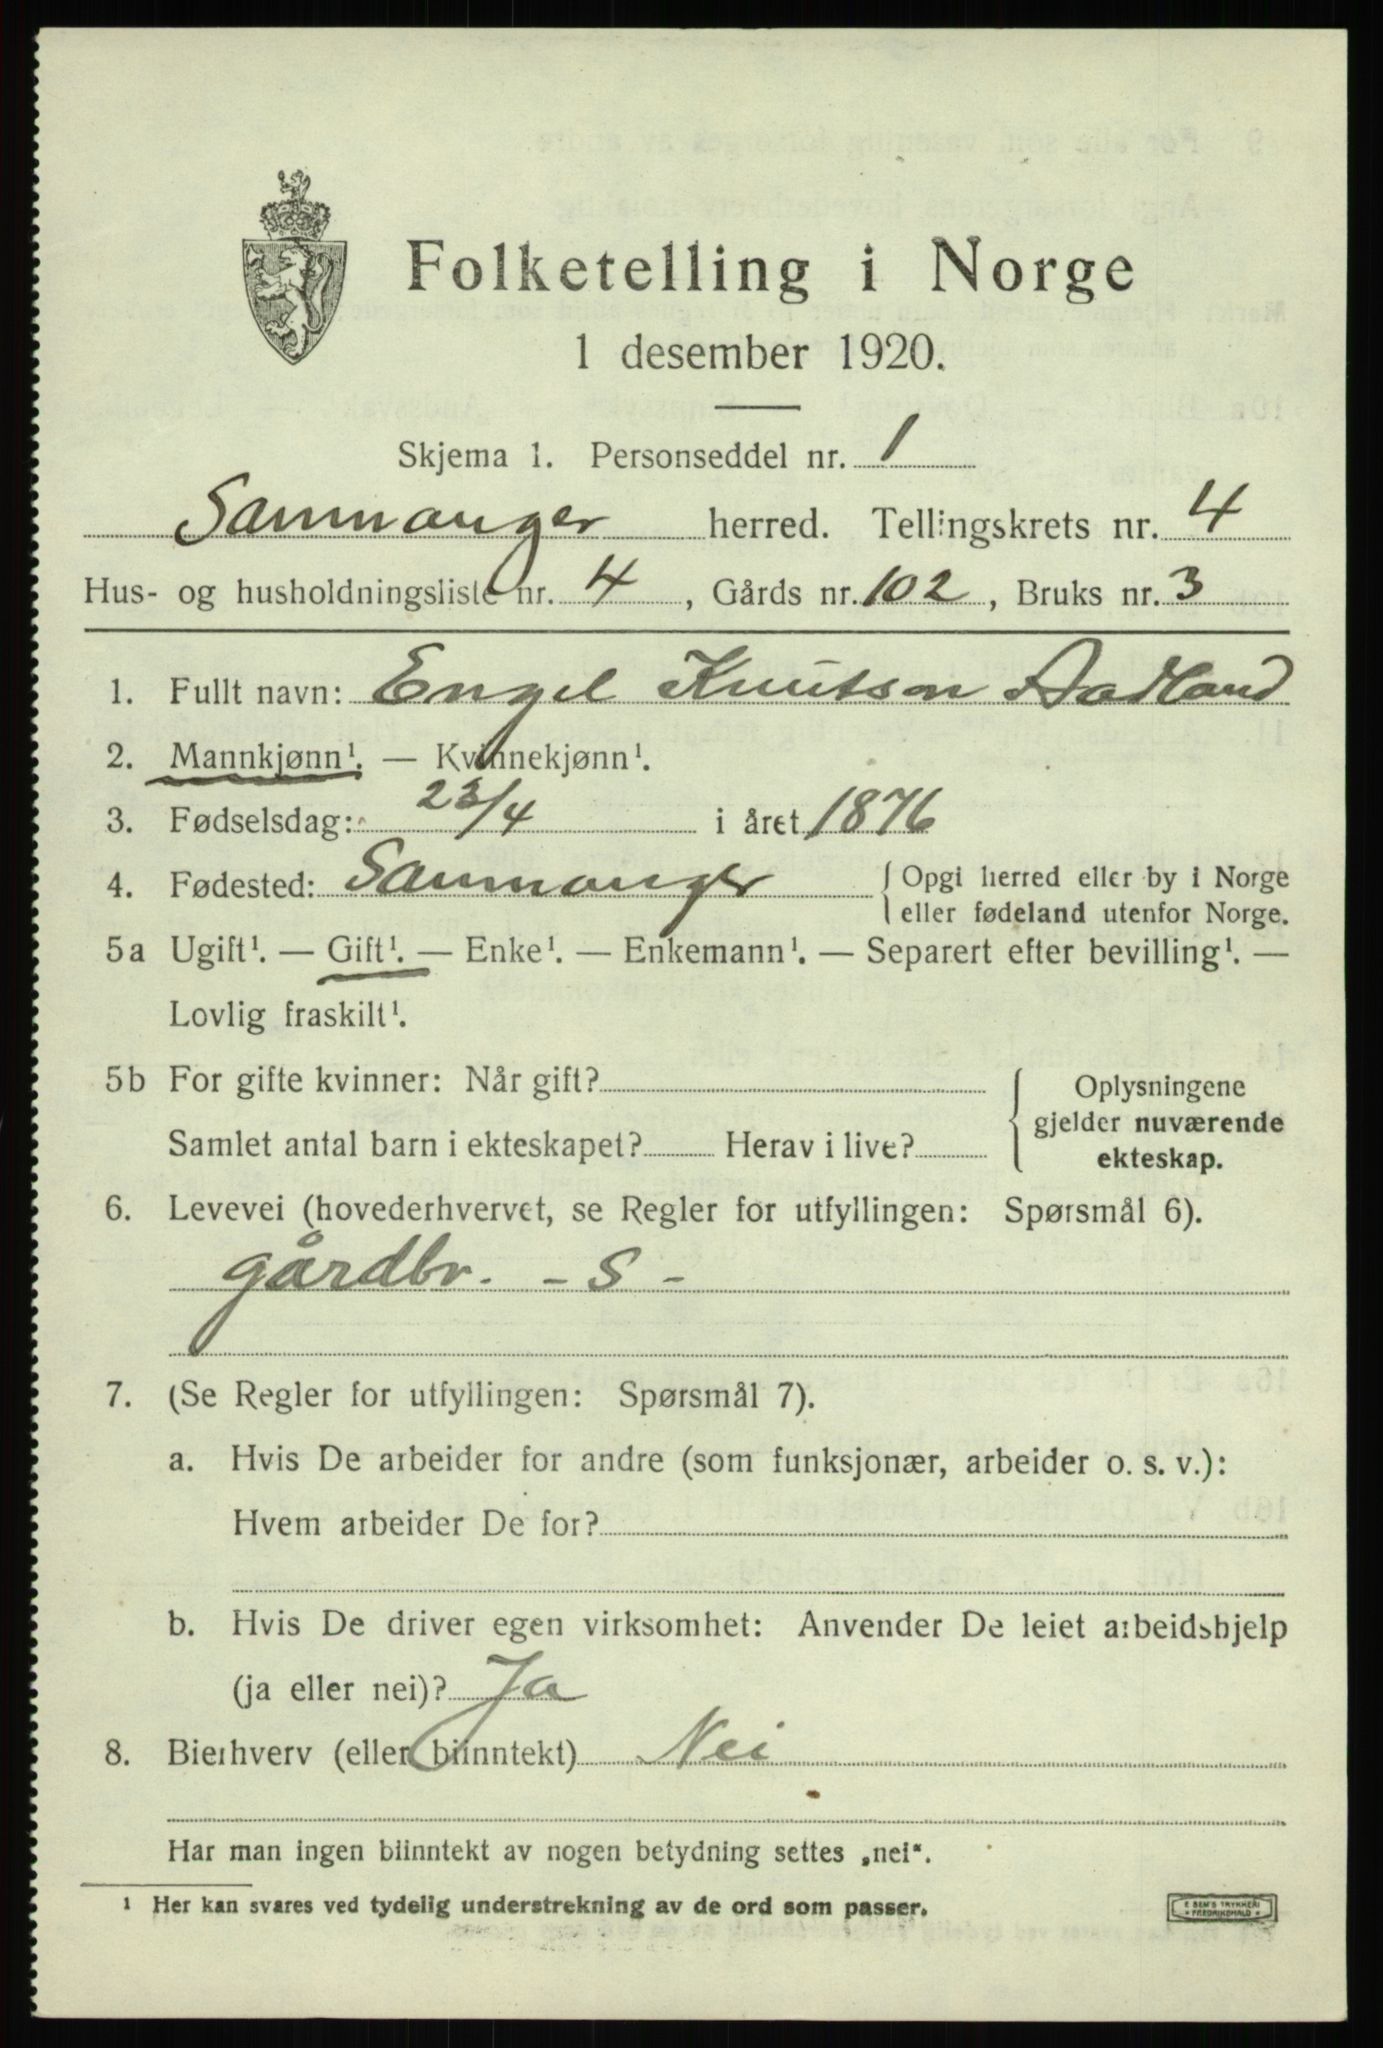 Folketelling i Norge
1 desember 1920.
Skjema 1. Personseddel nr. 1
Samnanger herred. Tellingskrets nr. 4
Hus- og husholdningsliste nr. 4, Gårds nr. 102, Bruks nr. 3
1. Fullt navn: Engel Knutson Aadland
2. Mannkjønn¹. — Kvinnekjønn¹.
3. Fødselsdag: 23/4 i året 1876
4. Fødested: Samnanger { Opgi herred eller by i Norge
eller fødeland utenfor Norge.
5a Ugift¹. — Gift¹. — Enke¹. — Enkemann¹. — Separert efter bevilling¹. —
Lovlig fraskilt¹.
5b For gifte kvinner: Når gift? { Oplysningene
gjelder nuværende
Samlet antal barn i ekteskapet? Herav i live? ekteskap.
6. Levevei (hovederhvervet, se Regler for utfyllingen: Spørsmål 6).
gårdbr. - S -
7. (Se Regler for utfyllingen: Spørsmål 7).
a. Hvis De arbeider for andre (som funksjonær, arbeider o. s. v.):
Hvem arbeider De for?
b. Hvis De driver egen virksomhet: Anvender De leiet arbeidshjelp
(ja eller nei)? Ja
8. Bierhverv (eller biinntekt) Nei
Har man ingen biinntekt av nogen betydning settes „nei“.
¹ Her kan svares ved tydelig understrekning av de ord som passer.
E SEM'S TRYKKERI
FREDRIKSHALD